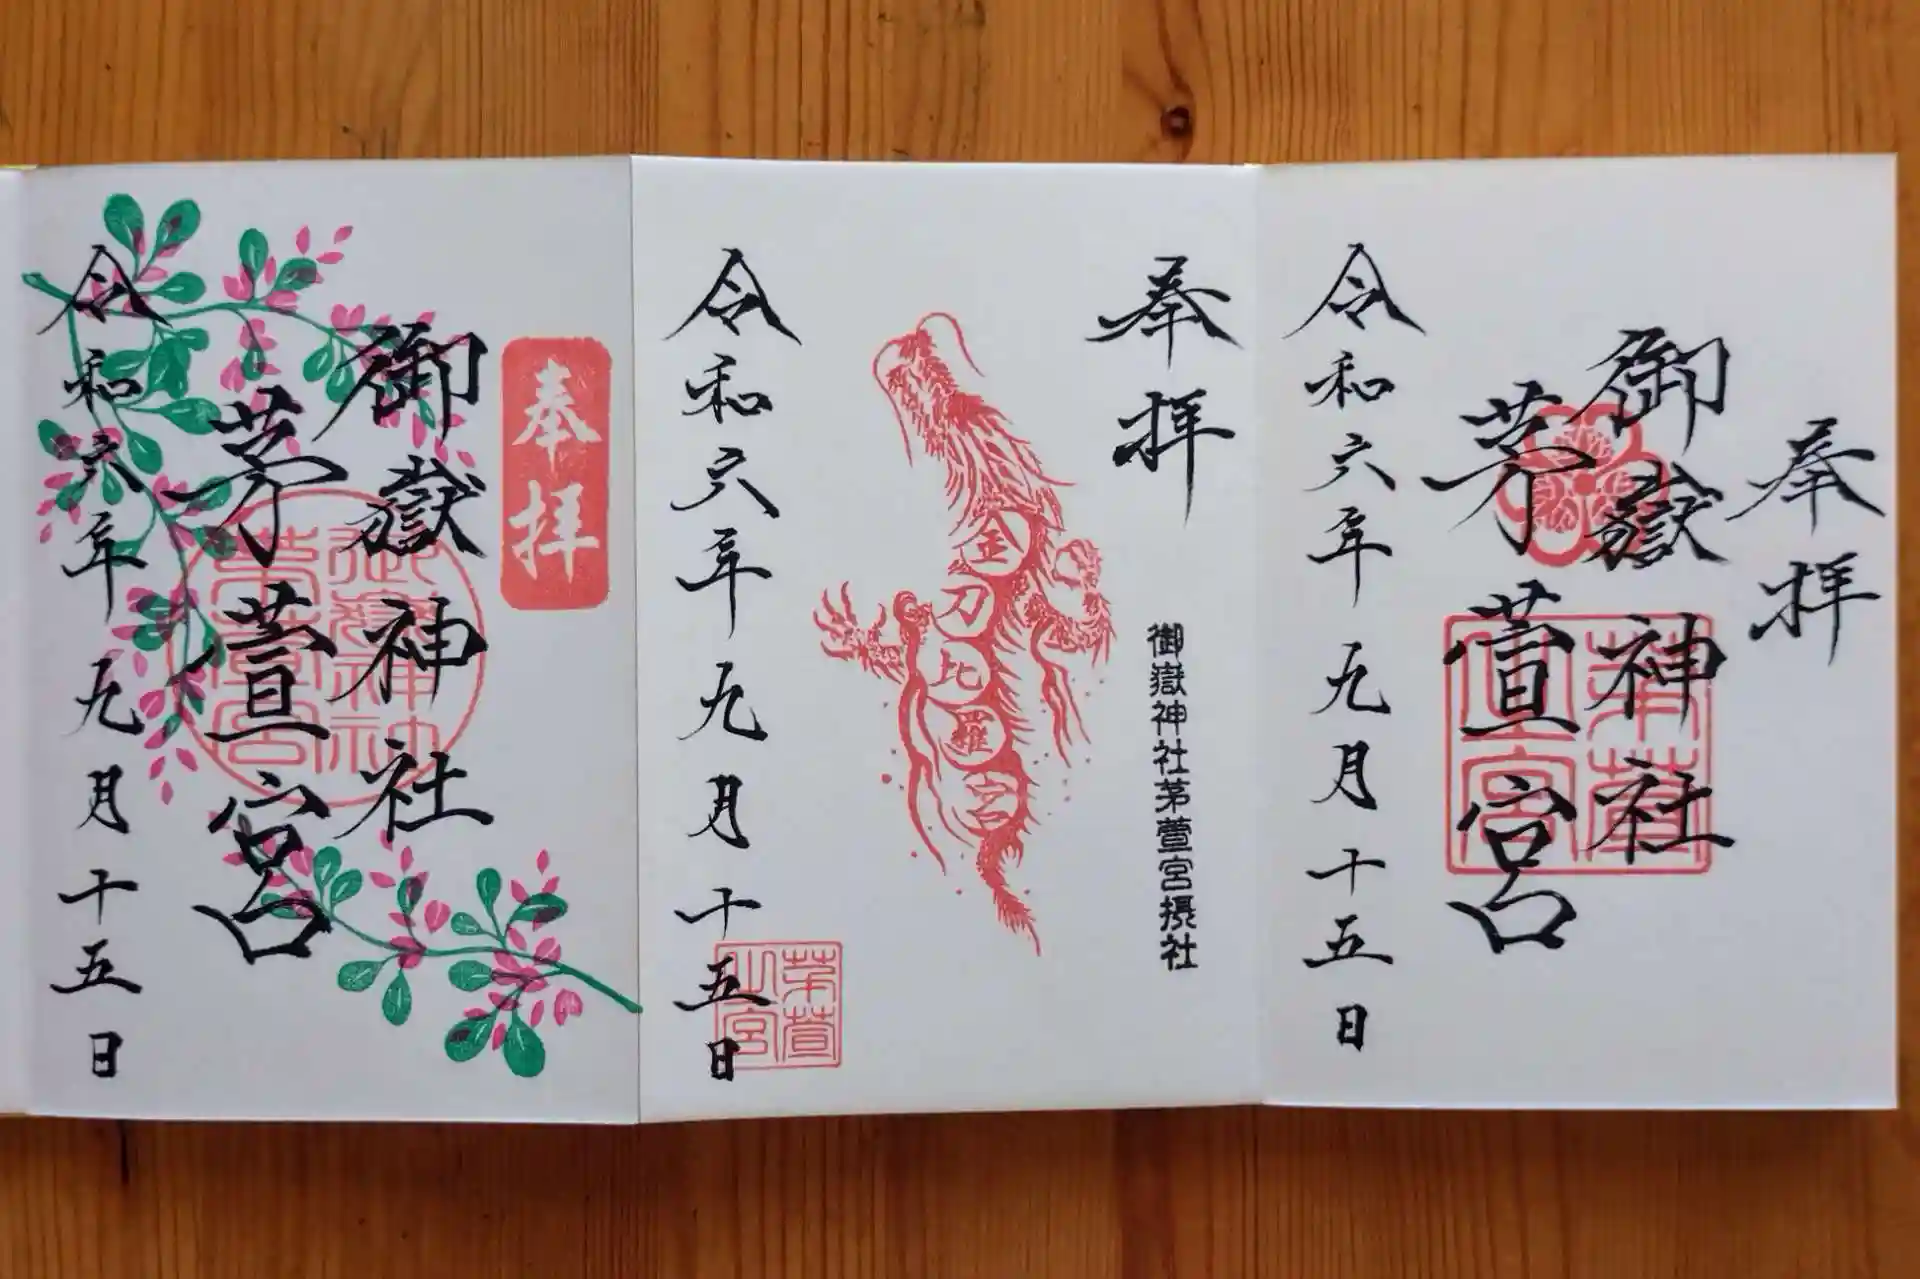 奉拝
御嶽神社
茅萱宮
令和六年九月十五日
奉拝
御嶽神社茅萱宮摂社
金刀比羅宮
令和六年九月十五日
茅萱
之宮
奉拝
御嶽神社
茅萱宮
御嶽神社
茅萱宮
令和六年九月十五日